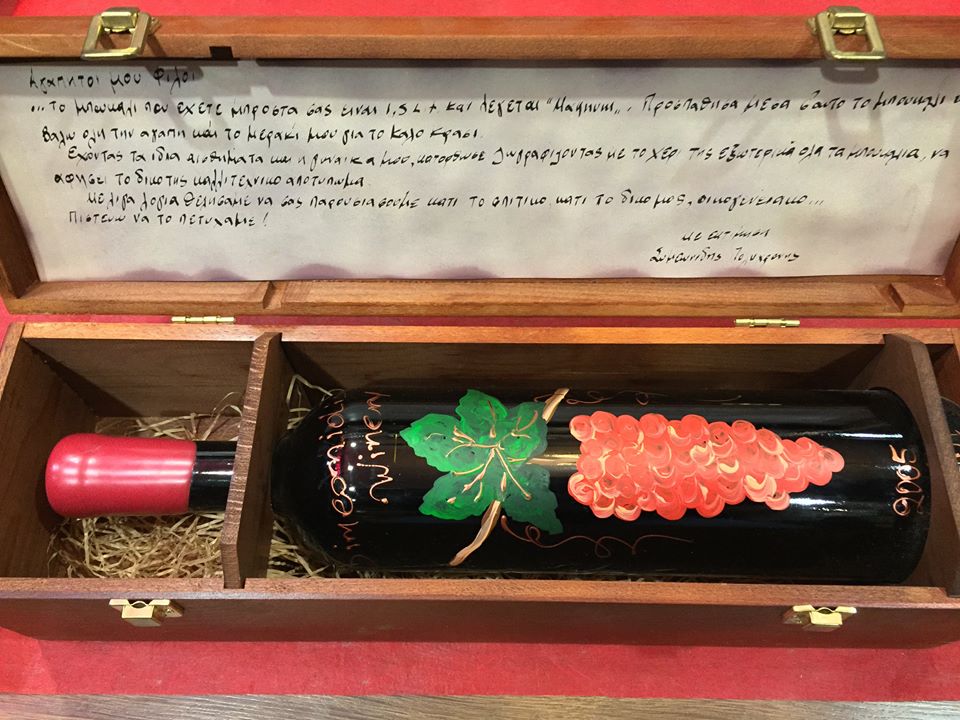 Αγαπητοι μου φιλοι
...το μπουκαλι που εχετε μπροστα σας ειναι 1,5 L + και λεγεται "Magnum„. Προσπαθησα μεσα σ'αυτο το μπουκαλι
βαλω ολη την αγαπη και το μερακι μου για το καλο κρασι.
Εχοντας τα ιδια αισθηματα και η γυναικα μου, κατορθωσε ζωγραφιζοντας με το χερι της εξωτερικα ολα τα μπουκαλια, να
αφησει το δικο της καλλιτεχνικο αποτυπωμα.
Με λιγα λογια θελησαμε να σας παρουσιασουμε κατι το σπιτικο, κατι το δικο μας, οικογενειακο...
Πιστευω να το πετυχαμε!
με εκτιμηση
Συμεωνιδης Πολυχρονης
Simeonidi
Winery
2005